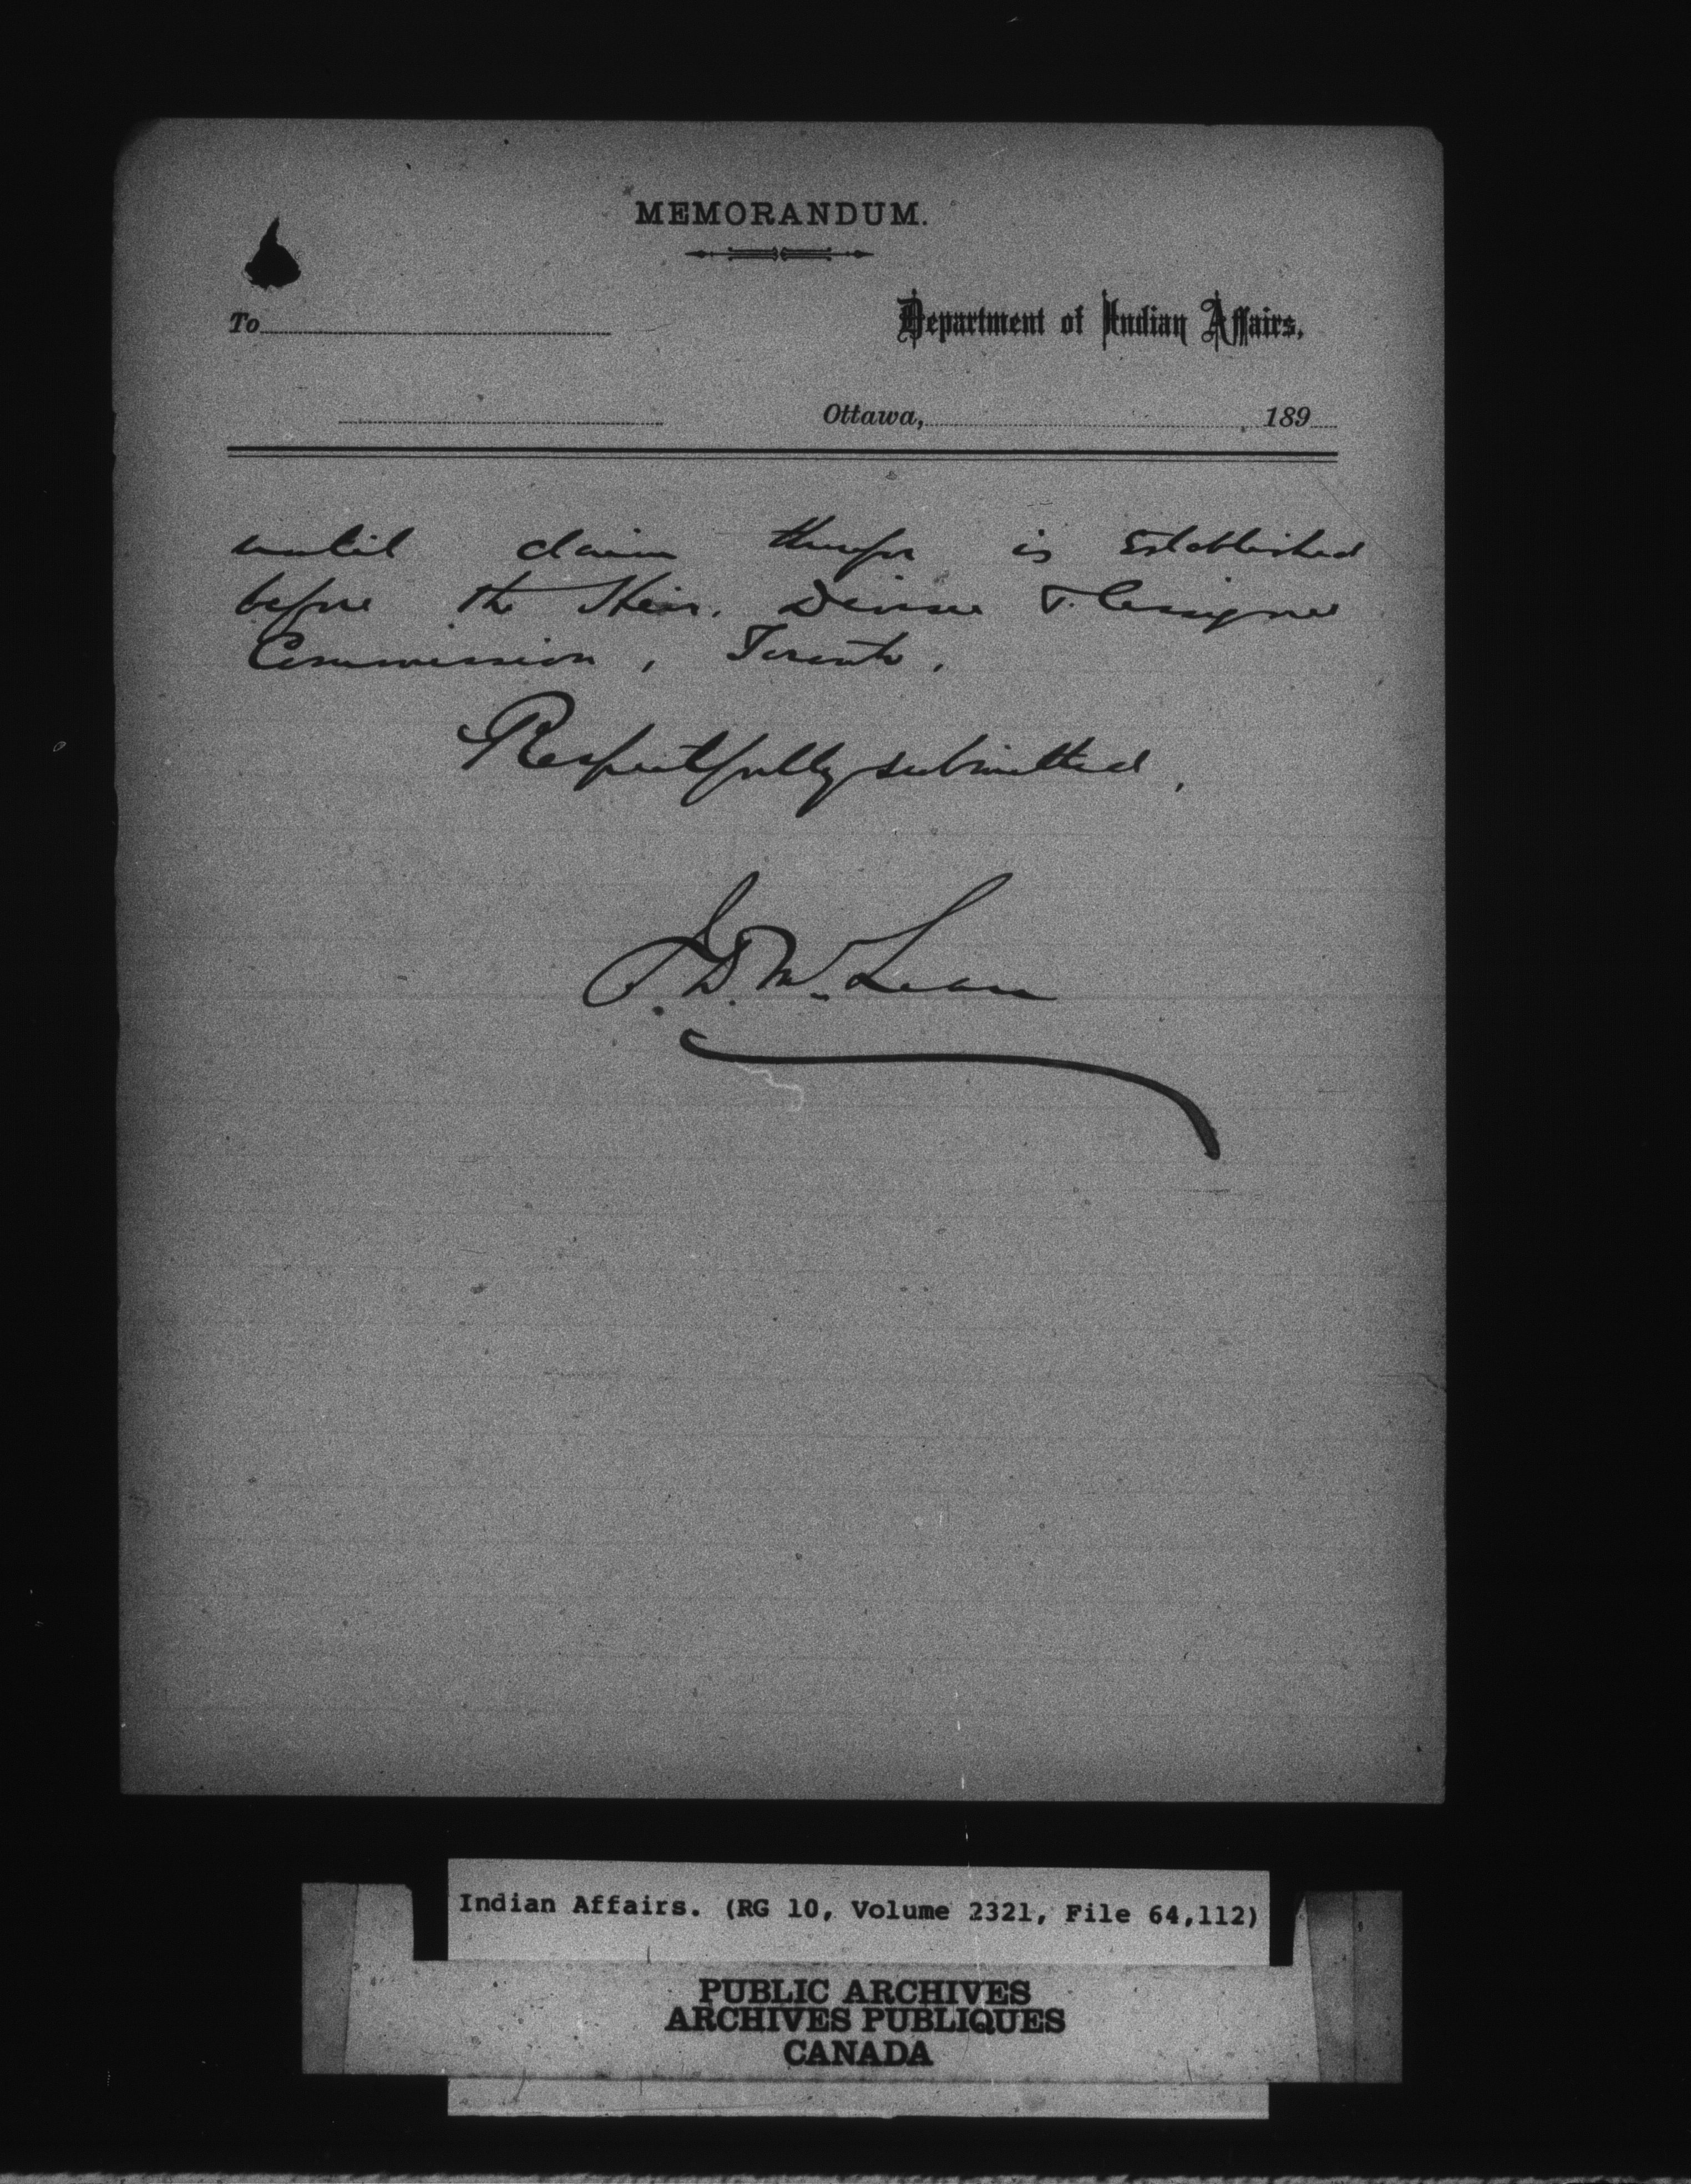 MEMORANDUM.
To
Department of Indian Affairs,
Ottawa, 189
until claim therefor is established
before the Heir, Devisee & Assignee
Commission, Toronto.
Respectfully submitted,
J. D. McLean
Indian Affairs. (RG 10, Volume 2321, File 64,112)
PUBLIC ARCHIVES
ARCHIVES PUBLIQUES
CANADA